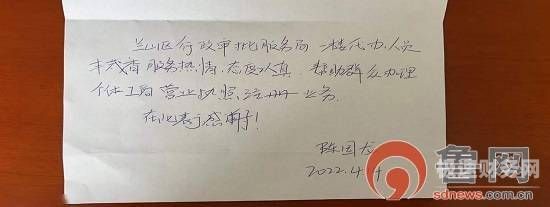 兰山区行政审批服务局一楼代办人员
服务热情,态度认真,帮助群众办理
个体工商营业执照注册业务。
在此表示感谢!
陈国龙
2022.4.4
鲁网
sdnews.com.cn